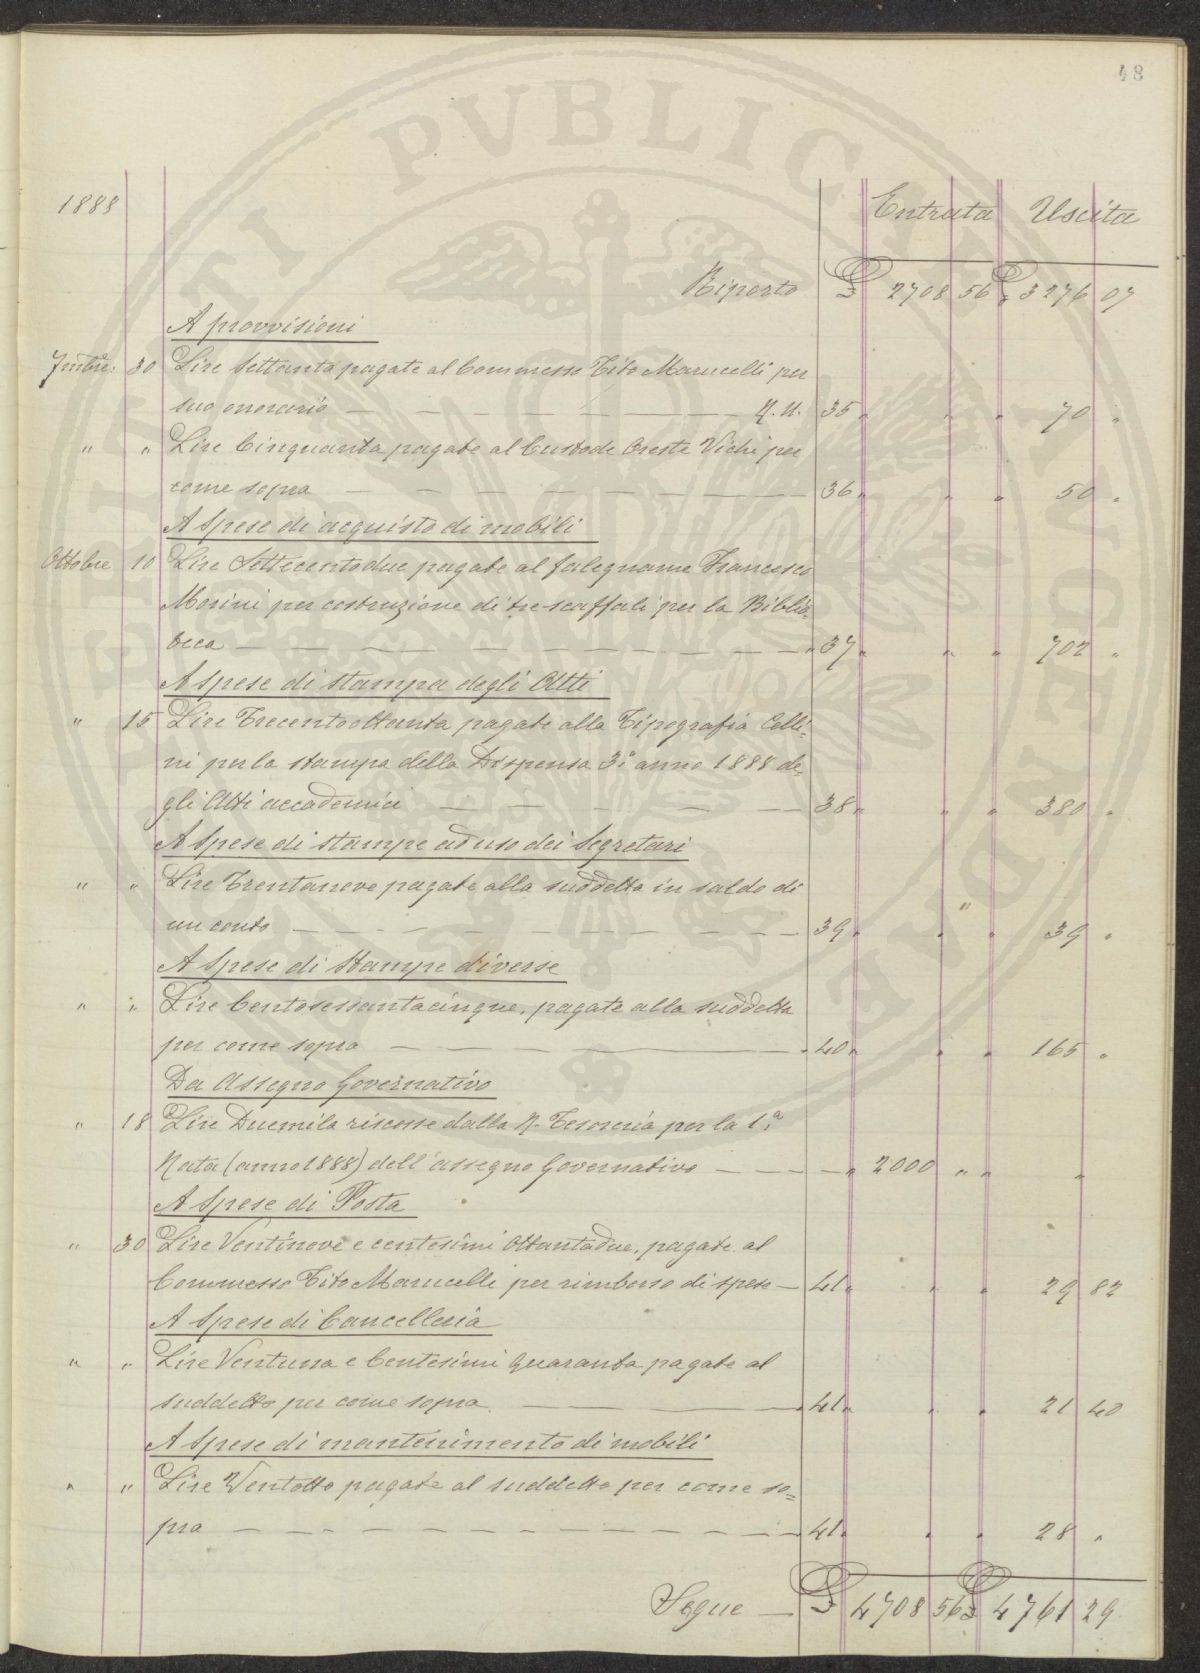 48
1888 Entrata Uscita
Riporto £ 2708 56 £ 3276 07
A provvisioni
7mbre: 30 Lire Settanta pagate al Commesso Tito Marucelli per
suo onorario — — — — — — N. U. 35 " " " 70 "
" " Lire Cinquanta pagate al Custode Oreste Vichi per
come sopra — — — — — — 36 " " " 50 "
A Spese di acquisto di mobili
Ottobre 10 Lire Settecentodue pagate al falegname Francesco
Morini per costruzione di tre scaffali per la Biblio-
teca — — — — — — " 37 " " " 702 "
A Spese di stampa degli Atti
" 15 Lire Trecentoottanta pagate alla Tipografia Celli-
ni per la stampa della Dispensa 3ª anno 1888 de-
gli Atti accademici — — — — 38 " " " 380 "
A Spese di stampe ad uso dei Segretari
" " Lire Trentanove pagate alla suddetta in saldo di
un conto — — — — — — 39 " " " 39 "
A Spese di Stampe diverse
" " Lire Centosessantacinque, pagate alla suddetta
per come sopra — — — — " 40 " " " 165 "
Da Assegno Governativo
" 18 Lire Duemila riscosse dalla R. Tesoreria per la 1ª
Rata (anno 1888) dell'assegno Governativo — — — " 2000 " " "
A Spese di Posta
" 30 Lire Ventinove e centesimi Ottantadue, pagate al
Commesso Tito Marucelli per rimborso di spese — 41 " " " 29 82
A Spese di Cancelleria
" " Lire Ventuna e Centesimi Quaranta pagate al
suddetto per come sopra — — — 41 " " " 21 40
A Spese di mantenimento di mobili
" " Lire Ventotto pagate al suddetto per come so=
pra — — — — — — 41 " " " 28 "
Segue — £ 4708 56 £ 4761 29